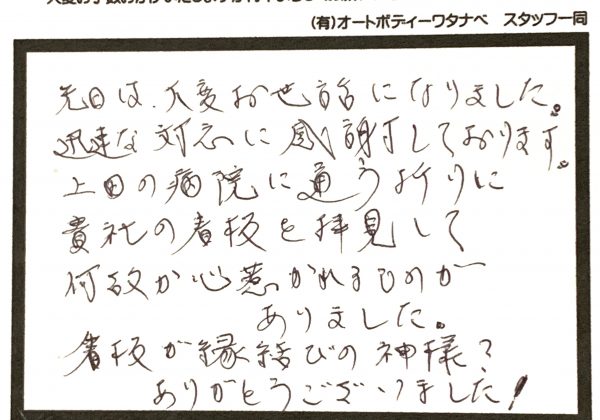 (有)オートボディーワタナベ　スタッフ一同
先日は、大変お世話になりました。
迅速な対応に感謝しております。
上田の病院に通う折りに
貴社の看板を拝見して
何故か心惹かれるものが
ありました。
看板が縁結びの神様?
ありがとうございました!